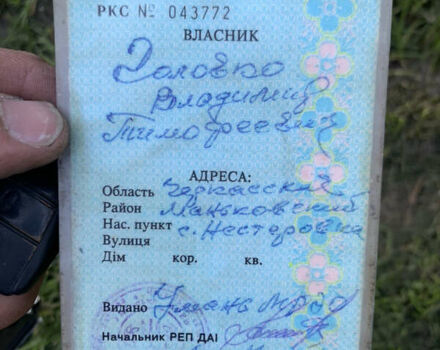 РКС № 043772
ВЛАСНИК
Головко
Владимир
Тимофеевич
АДРЕСА:
Область Черкасская
Район Маньковский
Нас. пункт с. Нестеровка
Вулиця
Дім кор. кв.
Видано Умань МРЭО
Начальник РЕП ДАІ